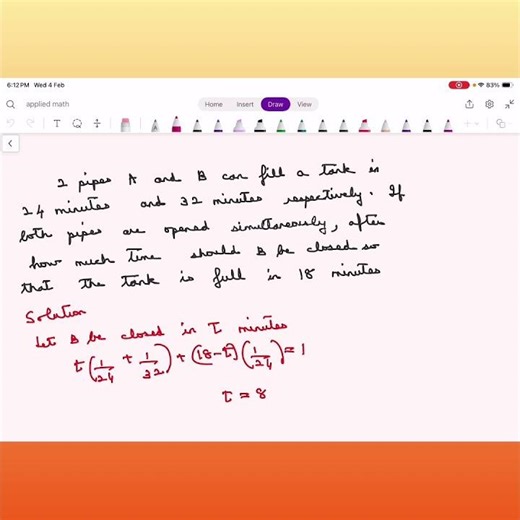 6:12 PM Wed 4 Feb
83%
applied math
Home Insert Draw View
2 pipes A and B can fill a tank in
24 minutes and 32 minutes respectively. If
both pipes are opened simultaneously, after
how much time should B be closed so
that the tank is full in 18 minutes
Solution
Let B be closed in t minutes
t(1/24 + 1/32) + (18-t)(1/24) = 1
t = 8